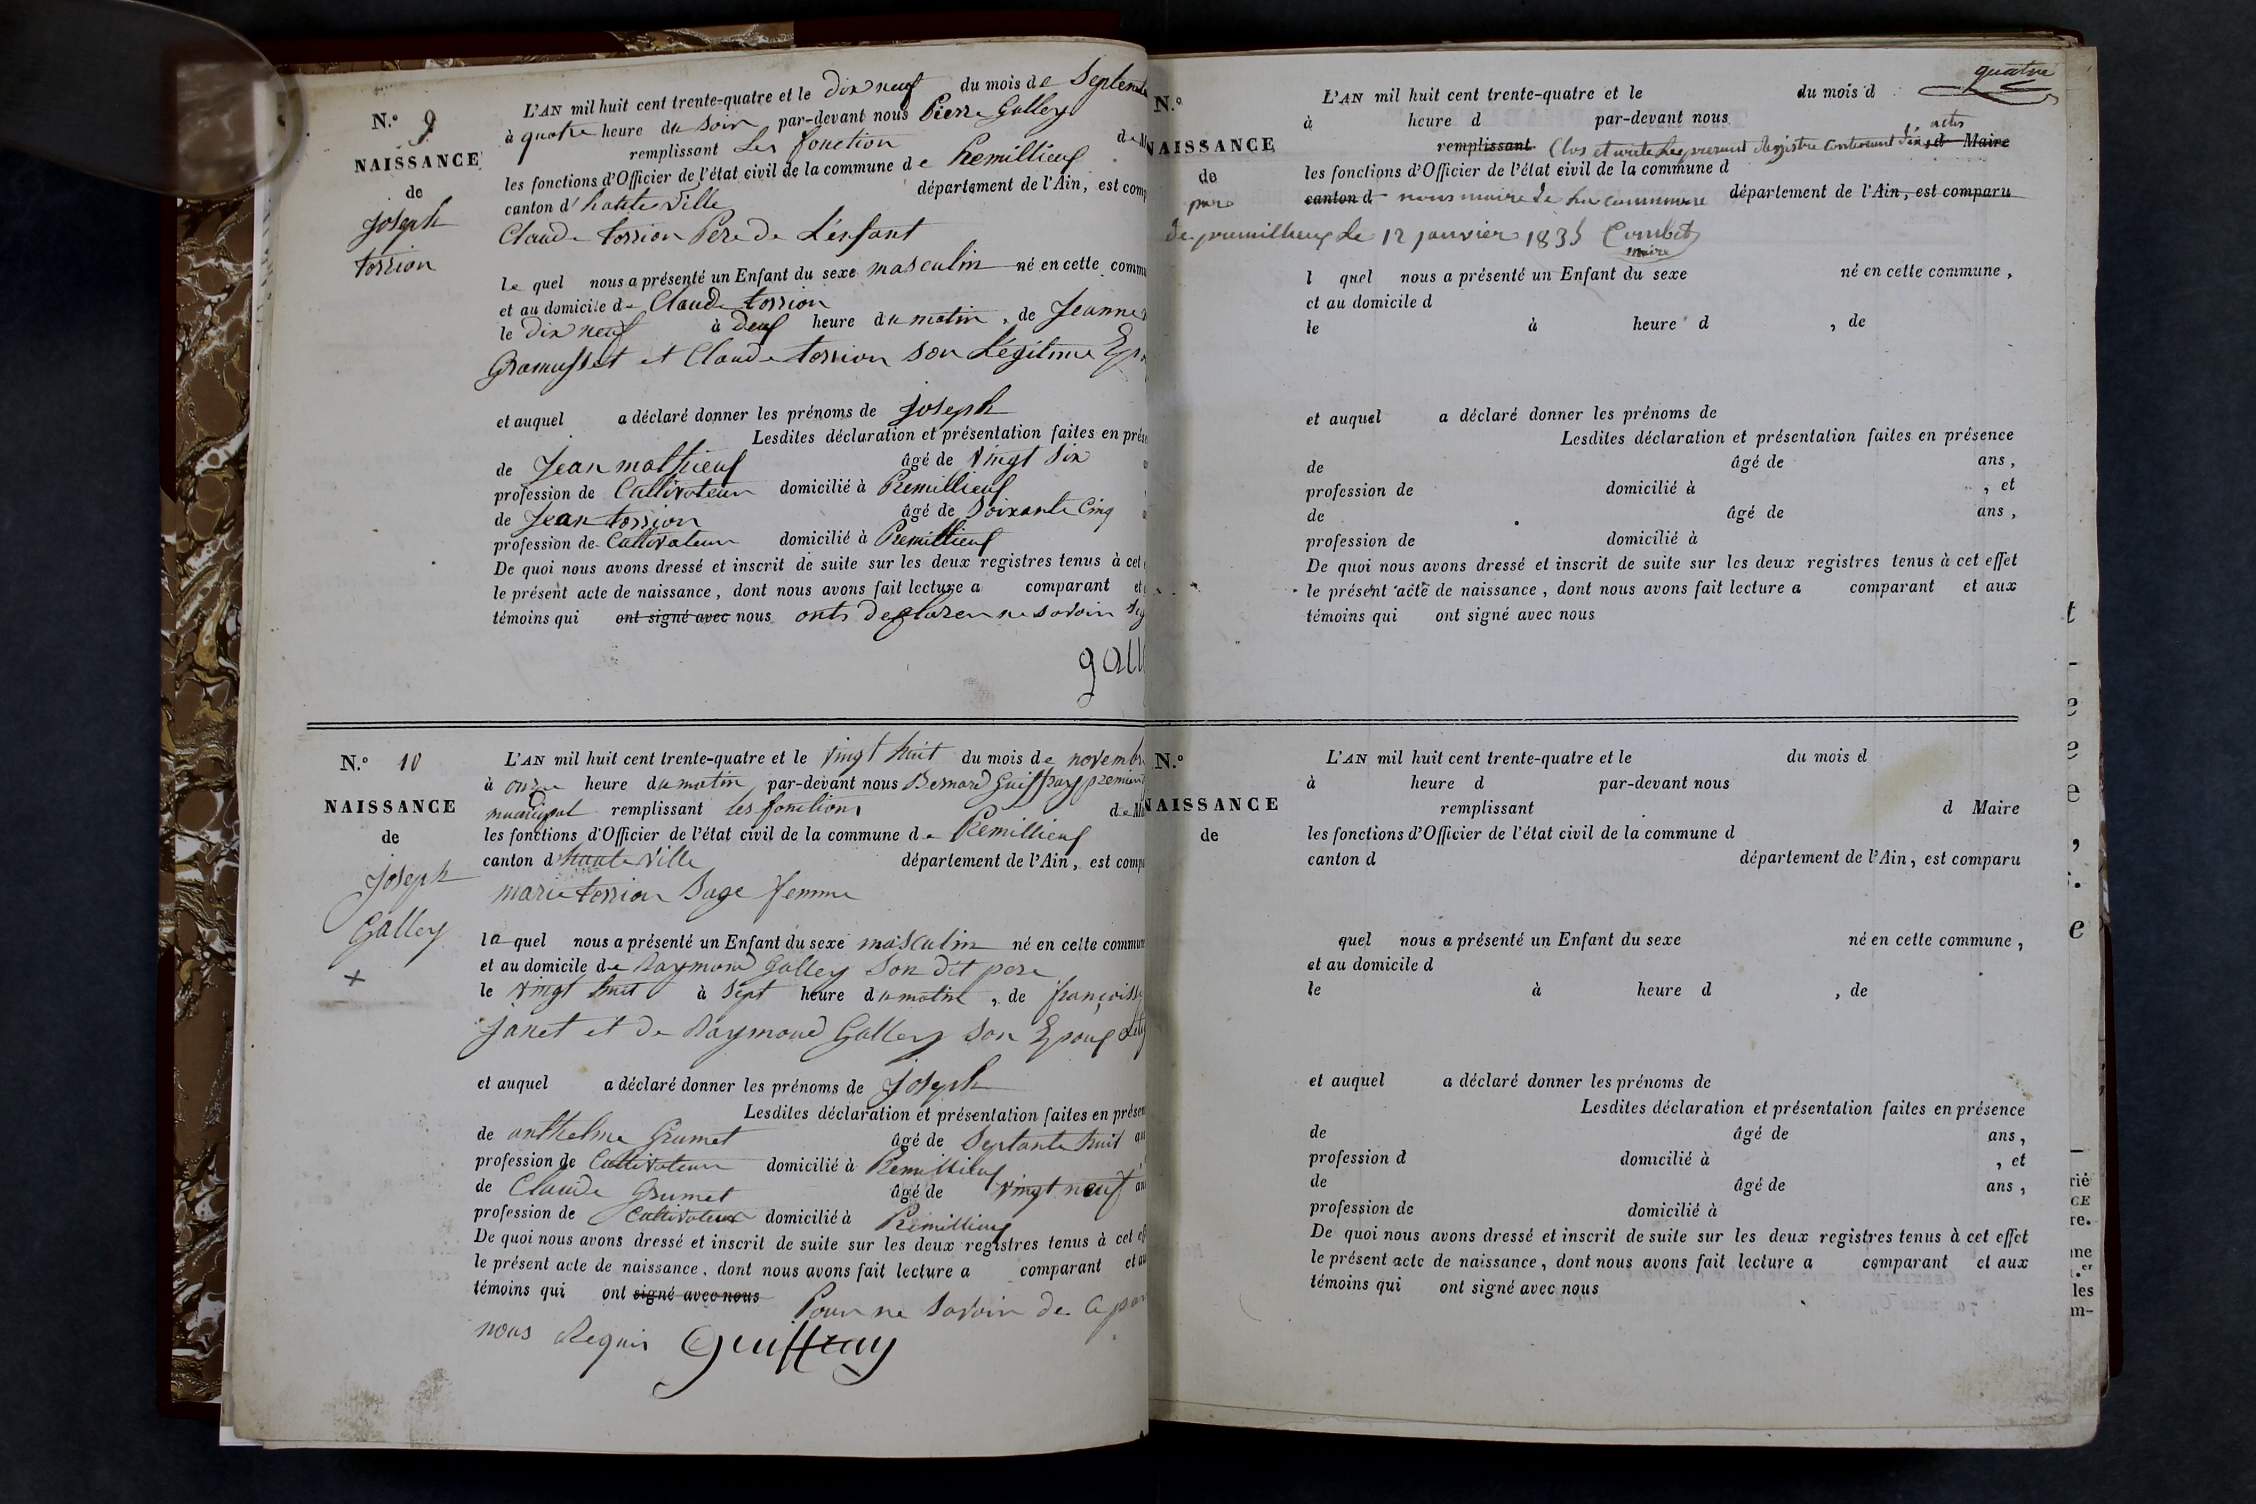 N.o 9
NAISSANCE
de
Joseph
torrion
L'AN mil huit cent trente-quatre et le dix neuf du mois de Septemb
à quatre heure du soir par-devant nous Pierre Galley
remplissant les fonction de M
les fonctions d'Officier de l'état civil de la commune de Premillieux
canton d'hauteville département de l'Ain, est comp
Claude torrion Pere de L'enfant
le quel nous a présenté un Enfant du sexe masculin né en cette commu
et au domicile de Claude torrion
le dix neuf à deux heure du matin, de Jeanne
Gramusset et Claude torrion son Légitime Epo
et auquel a déclaré donner les prénoms de Joseph
Lesdites déclaration et présentation faites en prése
de Jean mathieux âgé de vingt six
profession de Cultivateur domicilié à Premillieux
de Jean torrion âgé de Soixante Cinq
profession de Cultivateur domicilié à Premillieux
De quoi nous avons dressé et inscrit de suite sur les deux registres tenus à cet
le présent acte de naissance, dont nous avons fait lecture a comparant et
témoins qui ont signé avec nous onts declarer ne savoir sig
gall
N.o 10
NAISSANCE
de
Joseph
Galley
L'AN mil huit cent trente-quatre et le vingt huit du mois de novembr
à onze heure du matin par-devant nous Bernard Guiffray premier
municipal remplissant les fonctions de M
les fonctions d'Officier de l'état civil de la commune de Premillieux
canton d'hauteville département de l'Ain, est compa
marie torrion Sage femme
la quel nous a présenté un Enfant du sexe masculin né en cette commune
et au domicile de Raymond Galley son dit pere
le vingt huit à sept heure du matin, de françoisse
Janet et de Raymond Galley son Epoux
et auquel a déclaré donner les prénoms de Joseph
Lesdites déclaration et présentation faites en présen
de anthelme Grumet âgé de Septante huit an
profession de Cultivateur domicilié à Premillieux
de Claude Grumet âgé de vingt neuf an
profession de Cultivateur domicilié à Premillieux
De quoi nous avons dressé et inscrit de suite sur les deux registres tenus à cet ef
le présent acte de naissance, dont nous avons fait lecture a comparant et au
témoins qui ont signé avec nous Pour ne savoir de ce par
nous Requis Guiffray
quatre
N.o
NAISSANCE
de
L'AN mil huit cent trente-quatre et le du mois d
à heure d par-devant nous
actes
remplissant Clos et arrêté le présent Registre contenant dix d Maire
les fonctions d'Officier de l'état civil de la commune d
par canton d nous maire de la commune département de l'Ain, est comparu
de premillieux le 12 janvier 1835 Combet
maire
l quel nous a présenté un Enfant du sexe né en cette commune,
et au domicile d
le à heure d , de
et auquel a déclaré donner les prénoms de
Lesdites déclaration et présentation faites en présence
de âgé de ans,
profession de domicilié à , et
de âgé de ans,
profession de domicilié à
De quoi nous avons dressé et inscrit de suite sur les deux registres tenus à cet effet
le présent acte de naissance, dont nous avons fait lecture a comparant et aux
témoins qui ont signé avec nous
N.o
NAISSANCE
de
L'AN mil huit cent trente-quatre et le du mois d
à heure d par-devant nous
remplissant d Maire
les fonctions d'Officier de l'état civil de la commune d
canton d département de l'Ain, est comparu
quel nous a présenté un Enfant du sexe né en cette commune,
et au domicile d
le à heure d , de
et auquel a déclaré donner les prénoms de
Lesdites déclaration et présentation faites en présence
de âgé de ans,
profession d domicilié à , et
de âgé de ans,
profession de domicilié à
De quoi nous avons dressé et inscrit de suite sur les deux registres tenus à cet effet
le présent acte de naissance, dont nous avons fait lecture a comparant et aux
témoins qui ont signé avec nous